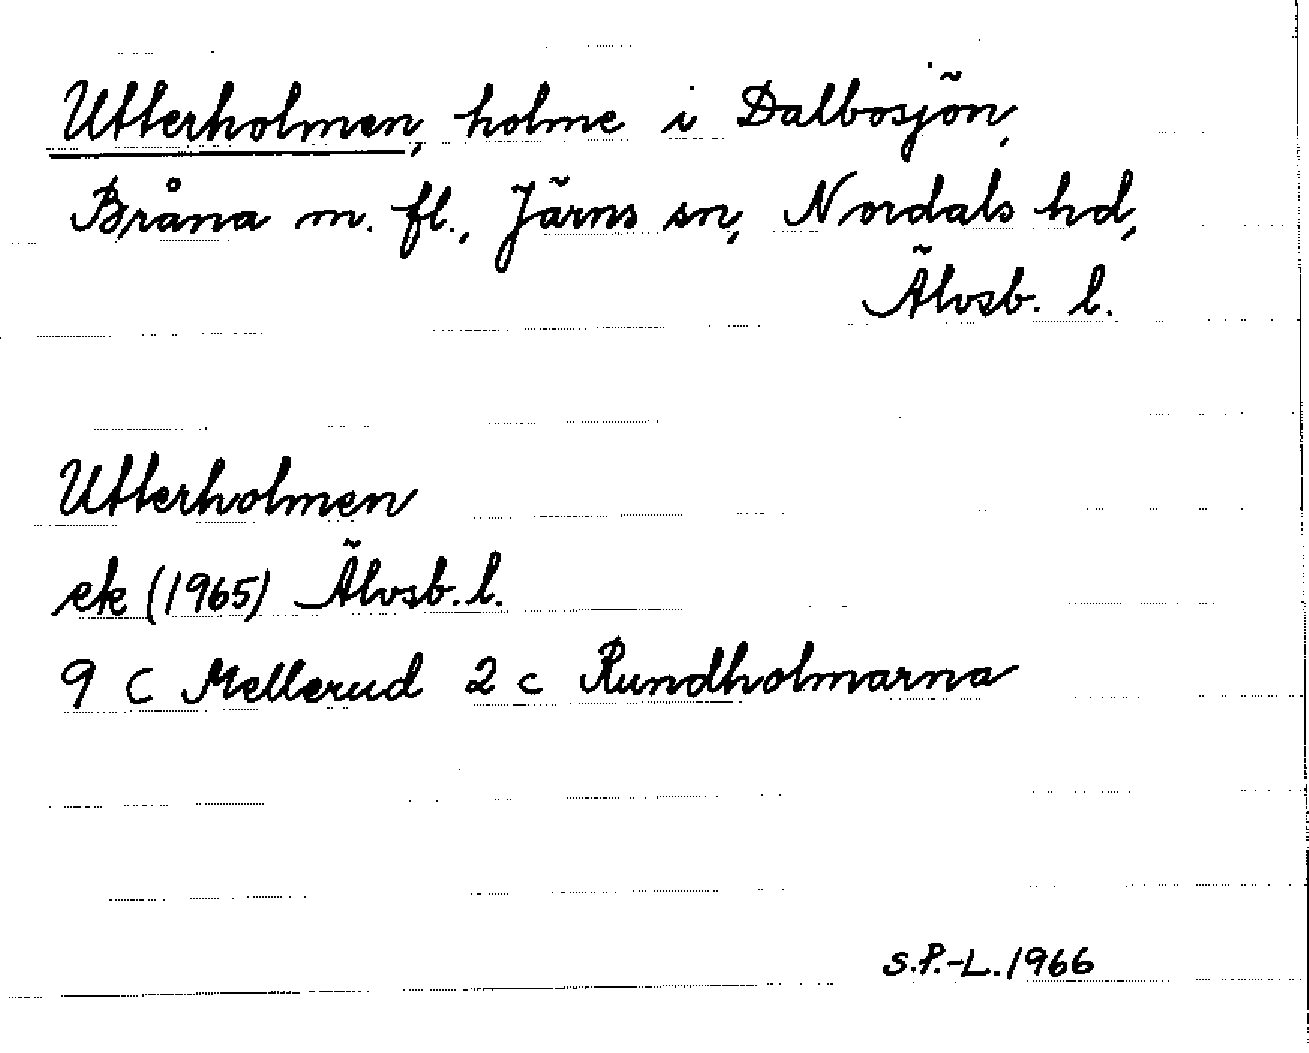 Utterholmen, holme i Dalbosjön,
Bråna m. fl., Järns sn, Nordals hd,
Älvsb. l.
Utterholmen
ek (1965) Älvsb. l.
9 C Mellerud 2 c Rundholmarna
S.P.-L. 1966